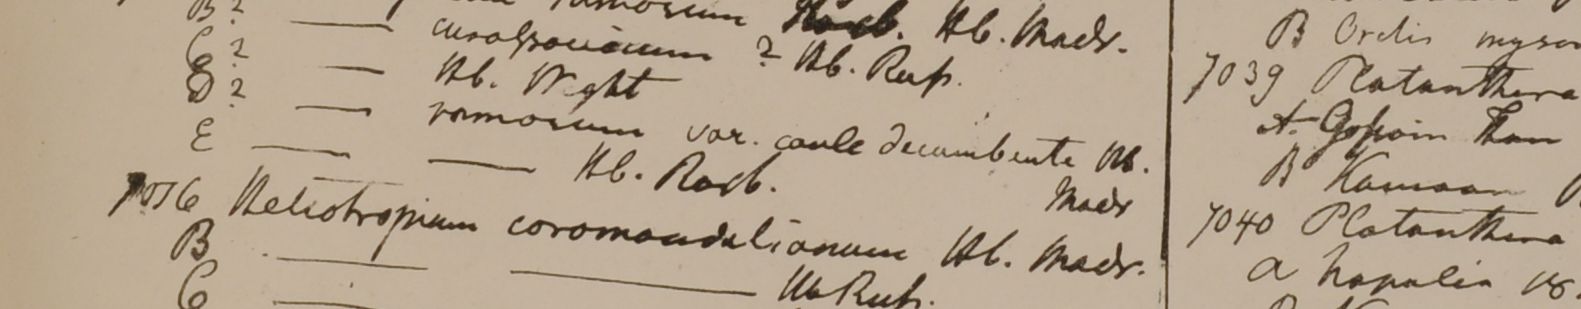 B? ramosum Hb. Madr.
C? curassavicum ? Hb. Rup.
D? Hb. Wight
ramosum var. caule decumbente Hb. Madr
E Hb. Roxb.
7036 Heliotropium coromandelianum Hb. Madr.
B Hb Rup.
C
B Orchis
7039 Platanthera
A. Gossain Than
B Kamaon
7040 Platanthera
a Napalia